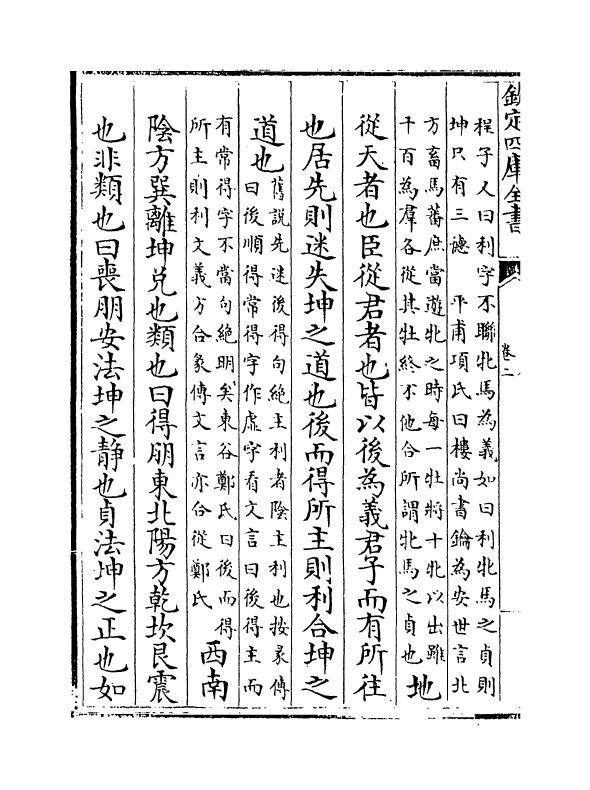 欽定四庫全書
卷二
程子又曰利字不聯牝馬為義如曰利牝馬之貞則
坤只有三德　平甫項氏曰樓尚書鑰為安世言北
方畜馬蕃庶當遊牝之時每一牡將十牝以出雖
千百為羣各從其牡終不他合所謂牝馬之貞也地
從天者也臣從君者也皆以後為義君子而有所往
也居先則迷失坤之道也後而得所主則利合坤之
道也舊説先迷後得句絶主利者陰主利也按彖傳
曰後順得常得字作虛字看文言曰後得主而
有常得字不當句絶明矣東谷鄭氏曰後而得
所主則利文義方合彖傳文言亦合從鄭氏西南
陰方巽離坤兌也類也曰得朋東北陽方乾坎艮震
也非類也曰喪朋安法坤之靜也貞法坤之正也如